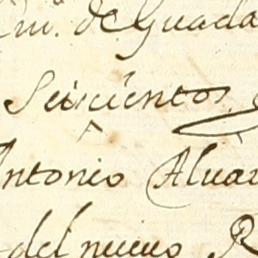 de Guada
Seiscientos
Antonio Alvar
del nuevo R